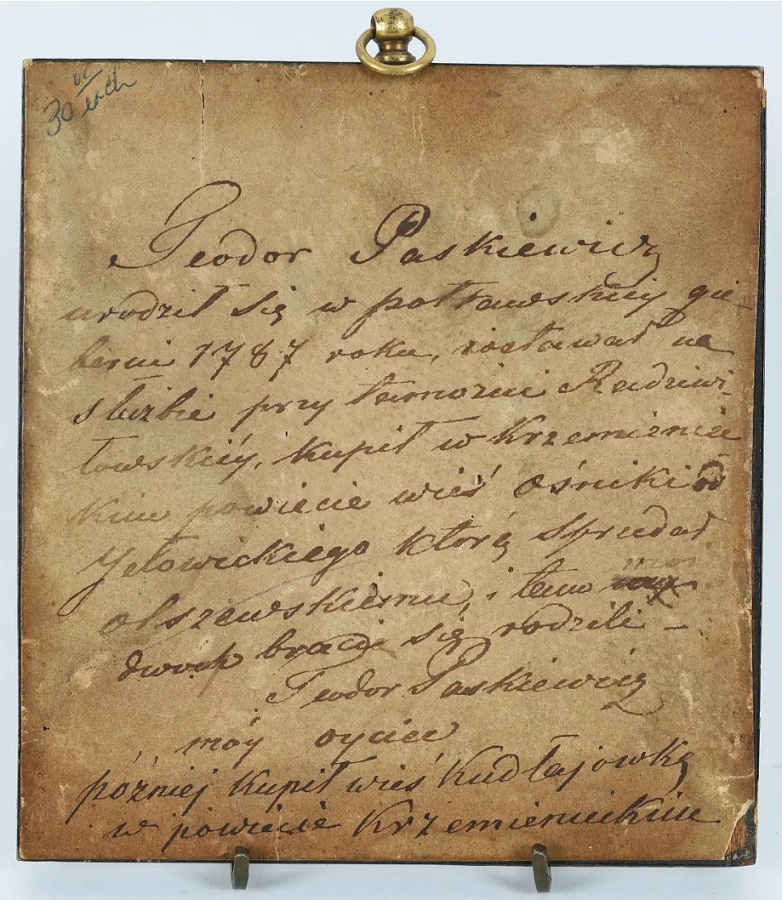 30 each
Teodor Paskiewicz
urodził się w połtawskiej gu
berni 1787 roku, zostawał na
służbie przy tamożni Radziwi-
łowskiéy, kupił w Krzemieniec
kim powiecie wieś Ośniki od
Jełowickiego którą sprzedał
Olszewskiemu, i tam
dwoch braci się rodzili –
Teodor Paskiewicz
móy oyciec
później kupił wieś Kudłajowkę
w powiecie Krzemienieckim